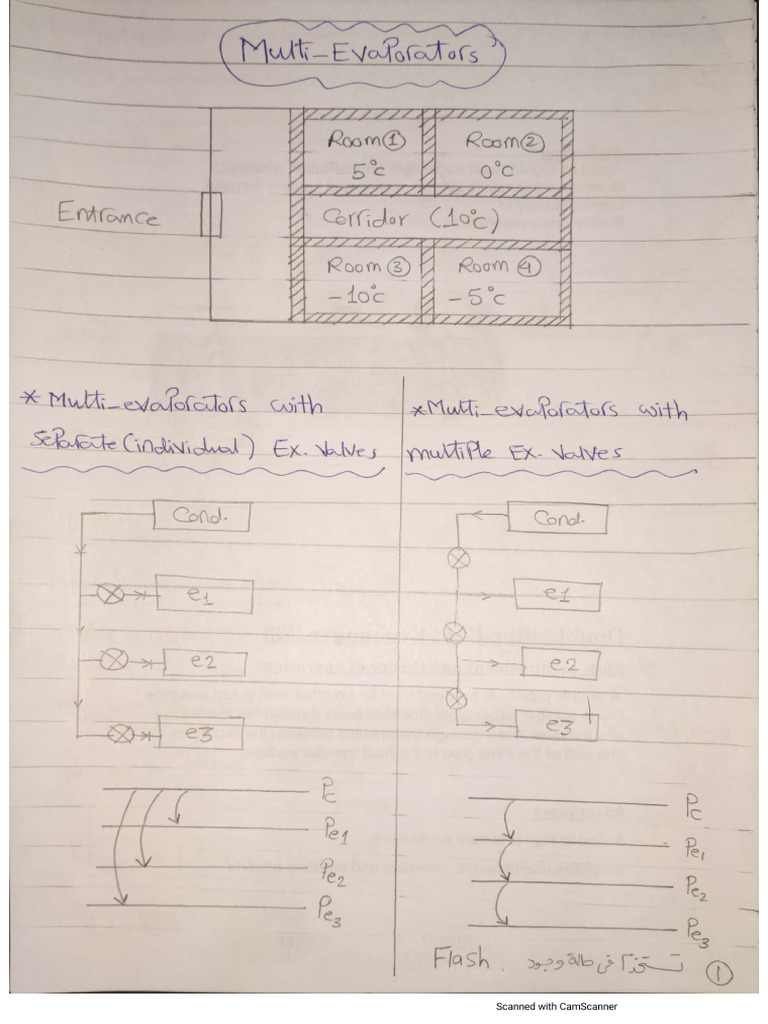 Multi-Evaporators
Room ①
5°c
Room ②
0°c
Entrance
Corridor (10°c)
Room ③
-10°c
Room ④
-5°c
* Multi-evaporators with
separate (individual) Ex. Valves
* Multi-evaporators with
multiple Ex. Valves
Cond.
e1
e2
e3
Cond.
e1
e2
e3
Pc
Pe1
Pe2
Pe3
Pc
Pe1
Pe2
Pe3
Flash. تستخدم في حالة وجود
①
Scanned with CamScanner